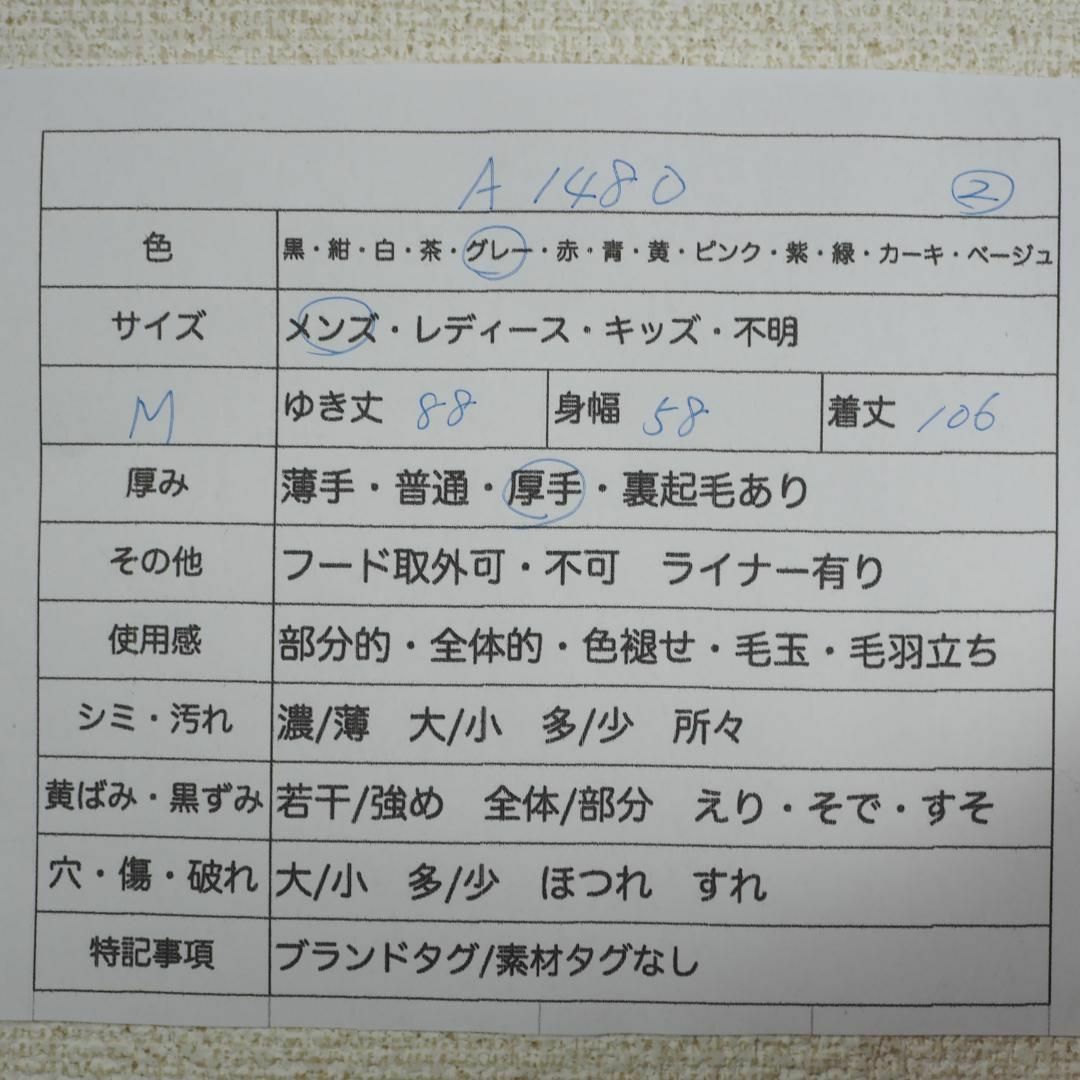 A1480 ②
色 黒・紺・白・茶・グレー・赤・青・黄・ピンク・紫・緑・カーキ・ベージュ
サイズ メンズ・レディース・キッズ・不明
M ゆき丈 88 身幅 58 着丈 106
厚み 薄手・普通・厚手・裏起毛あり
その他 フード取外可・不可 ライナー有り
使用感 部分的・全体的・色褪せ・毛玉・毛羽立ち
シミ・汚れ 濃/薄 大/小 多/少 所々
黄ばみ・黒ずみ 若干/強め 全体/部分 えり・そで・すそ
穴・傷・破れ 大/小 多/少 ほつれ すれ
特記事項 ブランドタグ/素材タグなし